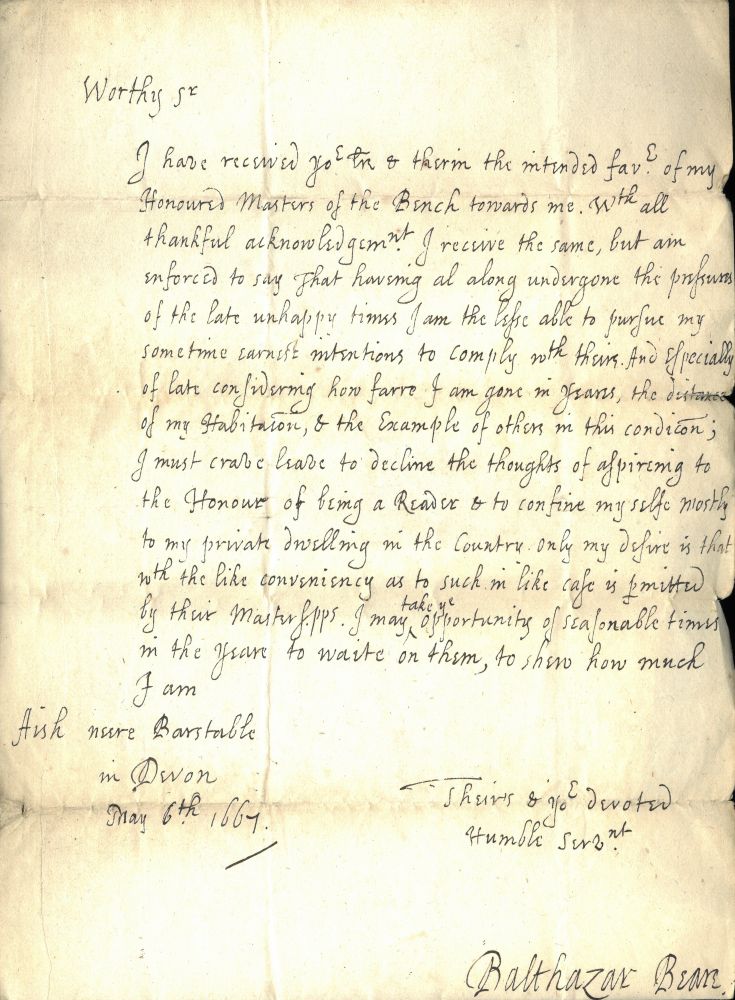 Worthy Sr
I have received yor. tre & therin the intended favr. of my
Honoured Masters of the Bench towards me. Wth all
thankful acknowledgemnt. I receive the same, but am
enforced to say That haveing al along undergone the pressures
of the late unhappy times I am the lesse able to pursue my
sometime earnest intentions to comply wth theirs. And Especially
of late considering how farre I am gone in Yeares, the distance
of my Habitacōn, & the Example of others in this condicōn;
I must crave leave to decline the thoughts of aspireing to
the Honour of being a Reader & to confine my selfe mostly
to my private dwelling in the Country. only my desire is that
wth the like conveniency as to such in like case is p̱mitted
by their Masters.pps. I may take ye opportunity of seasonable times
in the Yeare to waite on them, to shew how much
I am
Aish neere Barstable
in Devon
May 6th. 1667.
Theirs & yor devoted
Humble Servnt.
Balthazar Beare.